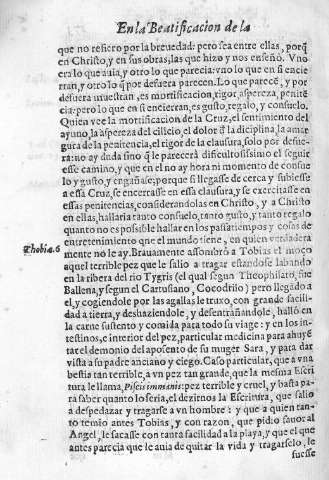 En la Beatificacion de la
que no refiero por la breuedad: pero sea entre ellas, porq̃
en Christo, y en sus obras, las que hizo y nos enseñò. Vno
era lo que auia, y otro lo que parecia: vno lo que en si encie
rran, y otro lo q̃ por defuera parecen. Lo que parecẽ, y por
defuera muestran, es mortificacion, rigor, aspereza, penitẽ
cia: pero lo que en si encierran, es gusto, regalo, y consuelo.
Quien vee la mortificacion de la Cruz, el sentimiento del
ayuno, la aspereza del cilicio, el dolor đ la diciplina, la amar
gura de la penitencia, el rigor de la clausura, solo por defue
ra: no ay duda sino q̃ le parecerà dificultosissimo el seguir
esse camino, y que en el no ay hora ni momento de consue
lo y gusto, y engañase; porque si llegasse de cerca y subiesse
a essa Cruz, se encerrasse en essa clausura, y se exercitasse en
essas penitencias, considerandolas en Christo, y a Christo
en ellas, hallaria tanto consuelo, tanto gusto, y tanto regalo
quanto no es possible hallar en los passatiempos y cosas de
entretenimiento que el mundo tiene, en quien verdadera
Thobiæ. 6 mente no le ay. Brauamente assombrò a Tobias el moço
aquel terrible pez que le salio a tragar estandose labando
en la ribera del rio Tygris (el qual segun Theophilato, fue
Ballena, y segun el Cartusiano, Cocodrilo) pero llegado a
el, y cogiendole por las agallas le truxo, con grande facili-
dad a tierra, y deshaziendole, y desentrañandole, hallò en
la carne sustento y comida para todo su viage: y en los inte
stinos, e interior del pez, particular medicina para ahuyẽ
tar el demonio del aposento de su muger Sara, y para dar
vista a su padre anciano y ciego. Caso particular, que a vna
bestia tan terrible, a vn pez tan grande, que la mesma Escri
tura le llama, Piscis immanis: pez terrible y cruel, y basta pa
ra saber quanto lo seria, el dezirnos la Escritura, que salio
a despedazar y tragarse a vn hombre: y que a quien tan-
to temio antes Tobias, y con razon, que pidio fauor al
Angel, le sacasse con tanta facilidad a la playa, y que el que
antes parecia que le auia de quitar la vida y tragarselo, le
fuesse